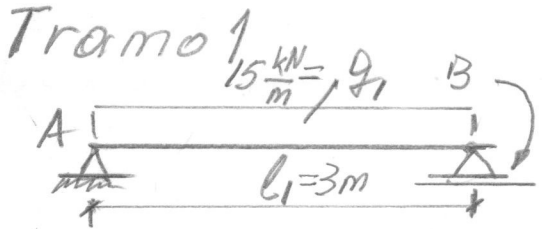 Tramo 1
15 kN/m = g₁
A B
l₁=3m